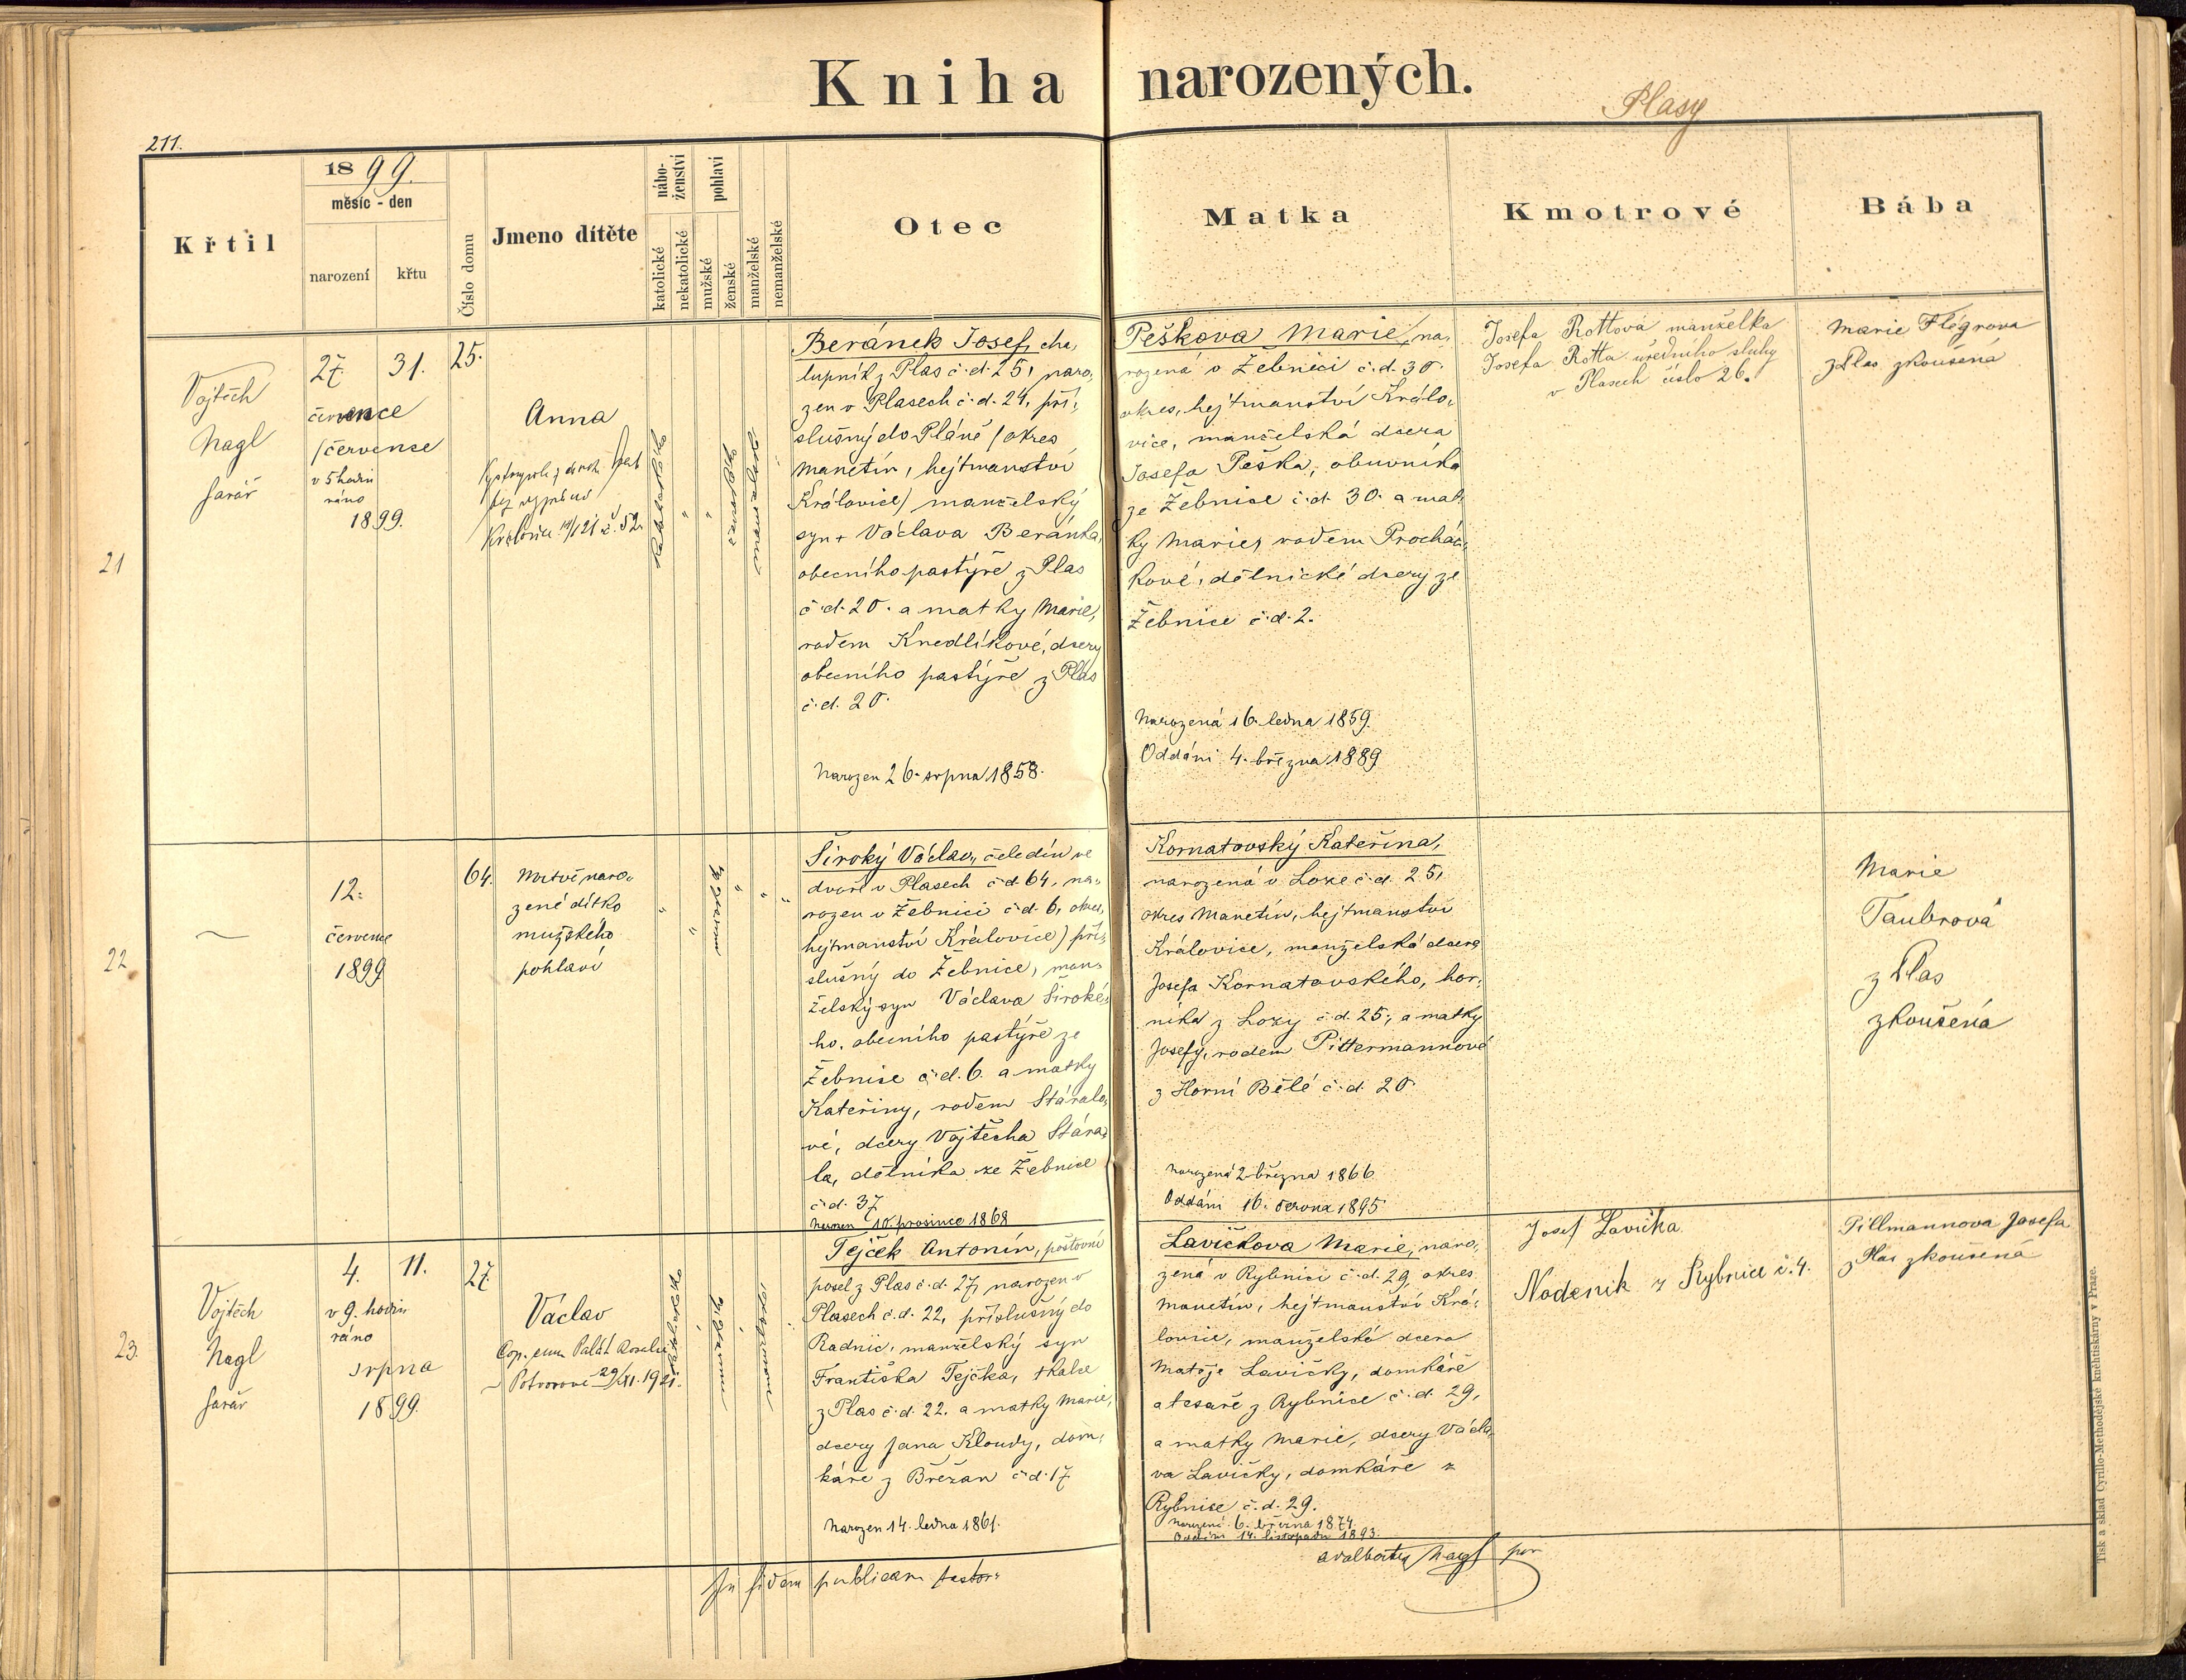 Kniha narozených.
Plasy
211.
Křtil
1899.
měsíc - den
narození
křtu
Číslo domu
Jmeno dítěte
nábo-
ženství
katolické
nekatolické
pohlaví
mužské
ženské
manželské
nemanželské
Otec
Matka
Kmotrové
Bába
21
Vojtěch
Nagl
farář
27.
31.
července
/července
v 5 hodin
ráno
1899.
25.
Anna
Královice č. 52.
katolické
ženské
manželské
Beránek Josef, cha,
lupník z Plas č. d. 25, naro,
zen v Plasech č. d. 24, pří,
slušný do Pláně (okres
Manetín, hejtmanství
Královice) manželský
syn + Václava Beránka,
obecního pastýře z Plas
č. d. 20. a matky Marie,
rodem Knedlíkové, dcery
obecního pastýře z Plas
č. d. 20.
Narozen 26. srpna 1858.
Peškova Marie, na,
rozená v Žebnici č. d. 30.
okres, hejtmanství Králo,
vice, manželská dcera
Josefa Peška, obuvníka
ze Žebnice č. d. 30. a mat,
ky Marie, rodem Procház,
kové, dělnické dcery ze
Žebnice č. d. 2.
Narozená 16. ledna 1859.
Oddáni 4. března 1889
Josefa Rottová manželka
Josefa Rotta úředního sluhy
v Plasech číslo 26.
Marie Flégrova
z Plas zkoušená
22
12.
července
1899
64.
Mrtvě naro,
zené dítko
mužského
pohlaví
mužské
Široký Václav, čeledín ve
dvoře v Plasech č. d. 64, na,
rozen v Žebnici č. d. 6, okres,
hejtmanství Královice) pří,
slušný do Žebnice, man,
želský syn Václava Široké,
ho, obecního pastýře ze
Žebnice č. d. 6. a matky
Kateřiny, rodem Stáralo,
vé, dcery Vojtěcha Stára,
la, dělníka ze Žebnice
č. d. 37
Narozen 10. prosince 1868
Kornatovský Kateřina,
narozená v Loze č. d. 25,
okres Manetín, hejtmanství
Královice, manželská dcera
Josefa Kornatovského, hor,
níka z Lozy č. d. 25, a matky
Josefy, rodem Pittermannové
z Horní Bělé č. d. 20.
Narozená 2. března 1866
Oddáni 16. června 1895
Marie
Taubrová
z Plas
zkoušená
23.
Vojtěch
Nagl
farář
4.
11.
v 9. hodin
ráno
srpna
1899.
27.
Václav
Cop. cum Palát
Potvorově 29/XI. 1921.
katolické
mužské
manželské
Tejček Antonín, poštovní
posel z Plas č. d. 27, narozen v
Plasech č. d. 22, příslušný do
Radnic, manželský syn
Františka Tejčka, tkalce
z Plas č. d. 22. a matky Marie,
dcery Jana Kloudy, dom,
káře z Břežan č. d. 17
Narozen 14. ledna 1861.
Lavičkova Marie, naro,
zená v Rybnici č. d. 29, okres
Manetín, hejtmanství Krá,
lovice, manželská dcera
Matěje Lavičky, domkáře
a tesaře z Rybnice č. d. 29,
a matky Marie, dcery Václa,
va Lavičky, domkáře z
Rybnice č. d. 29.
Narozená 6. března 1874.
Oddáni 14. listopadu 1893.
Josef Lavička
Nádeník z Rybnice č. 4.
Pillmannova Josefa
z Plas zkoušená
In fidem publicam testor:
Adalbertus Nagl par
Tisk a sklad Cyrillo-Methodějské knihtiskárny v Praze.